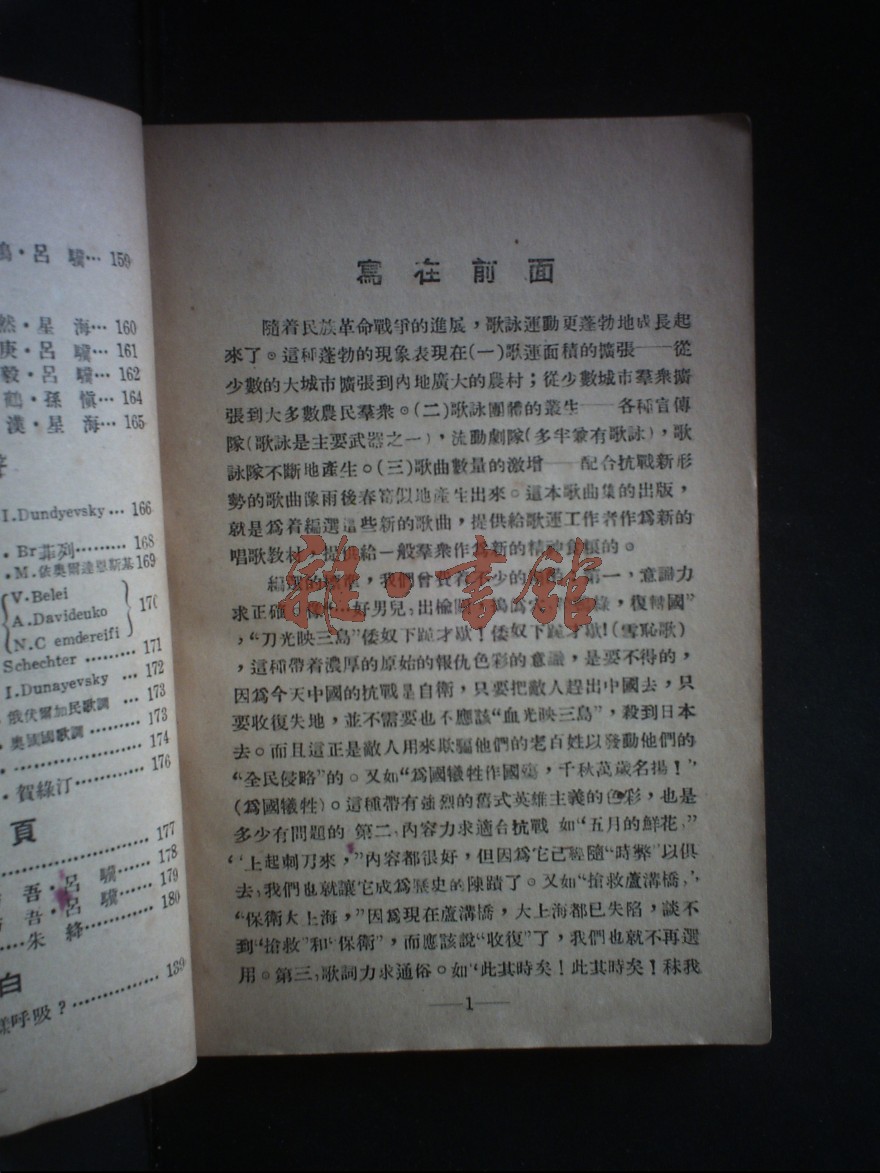 呂 驥… 159
然·星 海… 160
庚·呂 驥… 161
毅·呂 驥… 162
鶴·孫 愼… 164
漢·星 海… 165
I.Dundyevsky … 166
· Br菲列……… 168
·M.依奧爾達恩斯基169
V. Belei
A. Davideuko
N.C emdereifi
170
Schechter ……… 171
I. Dunayevsky …… 172
俄伏爾加民歌調 … 173
·奧國國歌調 …… 173
……… 174
·賀綠汀 ……… 176
頁
……… 177
吾·呂 驥… 178
吾·呂 驥… 179
……朱 絳… 180
白
樣呼吸？…………… 139
寫在前面
隨着民族革命戰爭的進展，歌詠運動更蓬勃地成長起
來了。這種蓬勃的現象表現在(一)歌運面積的擴張——從
少數的大城市擴張到內地廣大的農村；從少數城市羣衆擴
張到大多數農民羣衆。(二)歌詠團體的叢生——各種宣傳
隊(歌詠是主要武器之一)，流動劇隊(多半兼有歌詠)，歌
詠隊不斷地產生。(三)歌曲數量的激增——配合抗戰新形
勢的歌曲像雨後春筍似地產生出來。這本歌曲集的出版，
就是爲着編選這些新的歌曲，提供給歌運工作者作爲新的
唱歌敎材，提供給一般羣衆作爲新的精神食糧的。
編選的標準，我們曾費着不少的 第一，意識力
求正確。 好男兒，出楡關， 復韓國"
，"刀光映三島"倭奴下跪才歇！倭奴下跪才歇！(雪恥歌)
，這種帶着濃厚的原始的報仇色彩的意識，是要不得的，
因爲今天中國的抗戰是自衛，只要把敵人趕出中國去，只
要收復失地，並不需要也不應該"血光映三島"，殺到日本
去。而且這正是敵人用來欺騙他們的老百姓以發動他們的
"全民侵略"的。又如"爲國犧牲作國殤，千秋萬歲名揚！"
(爲國犧牲)。這種帶有強烈的舊式英雄主義的色彩，也是
多少有問題的 第二、內容力求適合抗戰 如"五月的鮮花，"
"上起刺刀來，"內容都很好，但因爲它已經隨"時弊"以俱
去，我們也就讓它成爲歷史的陳蹟了。又如"搶救蘆溝橋，"
"保衛大上海，"因爲現在蘆溝橋，大上海都已失陷，談不
到"搶救"和"保衛"，而應該說"收復"了，我們也就不再選
用。第三、歌詞力求通俗。如"此其時矣！此其時矣！秣我
—1—
雜·書館